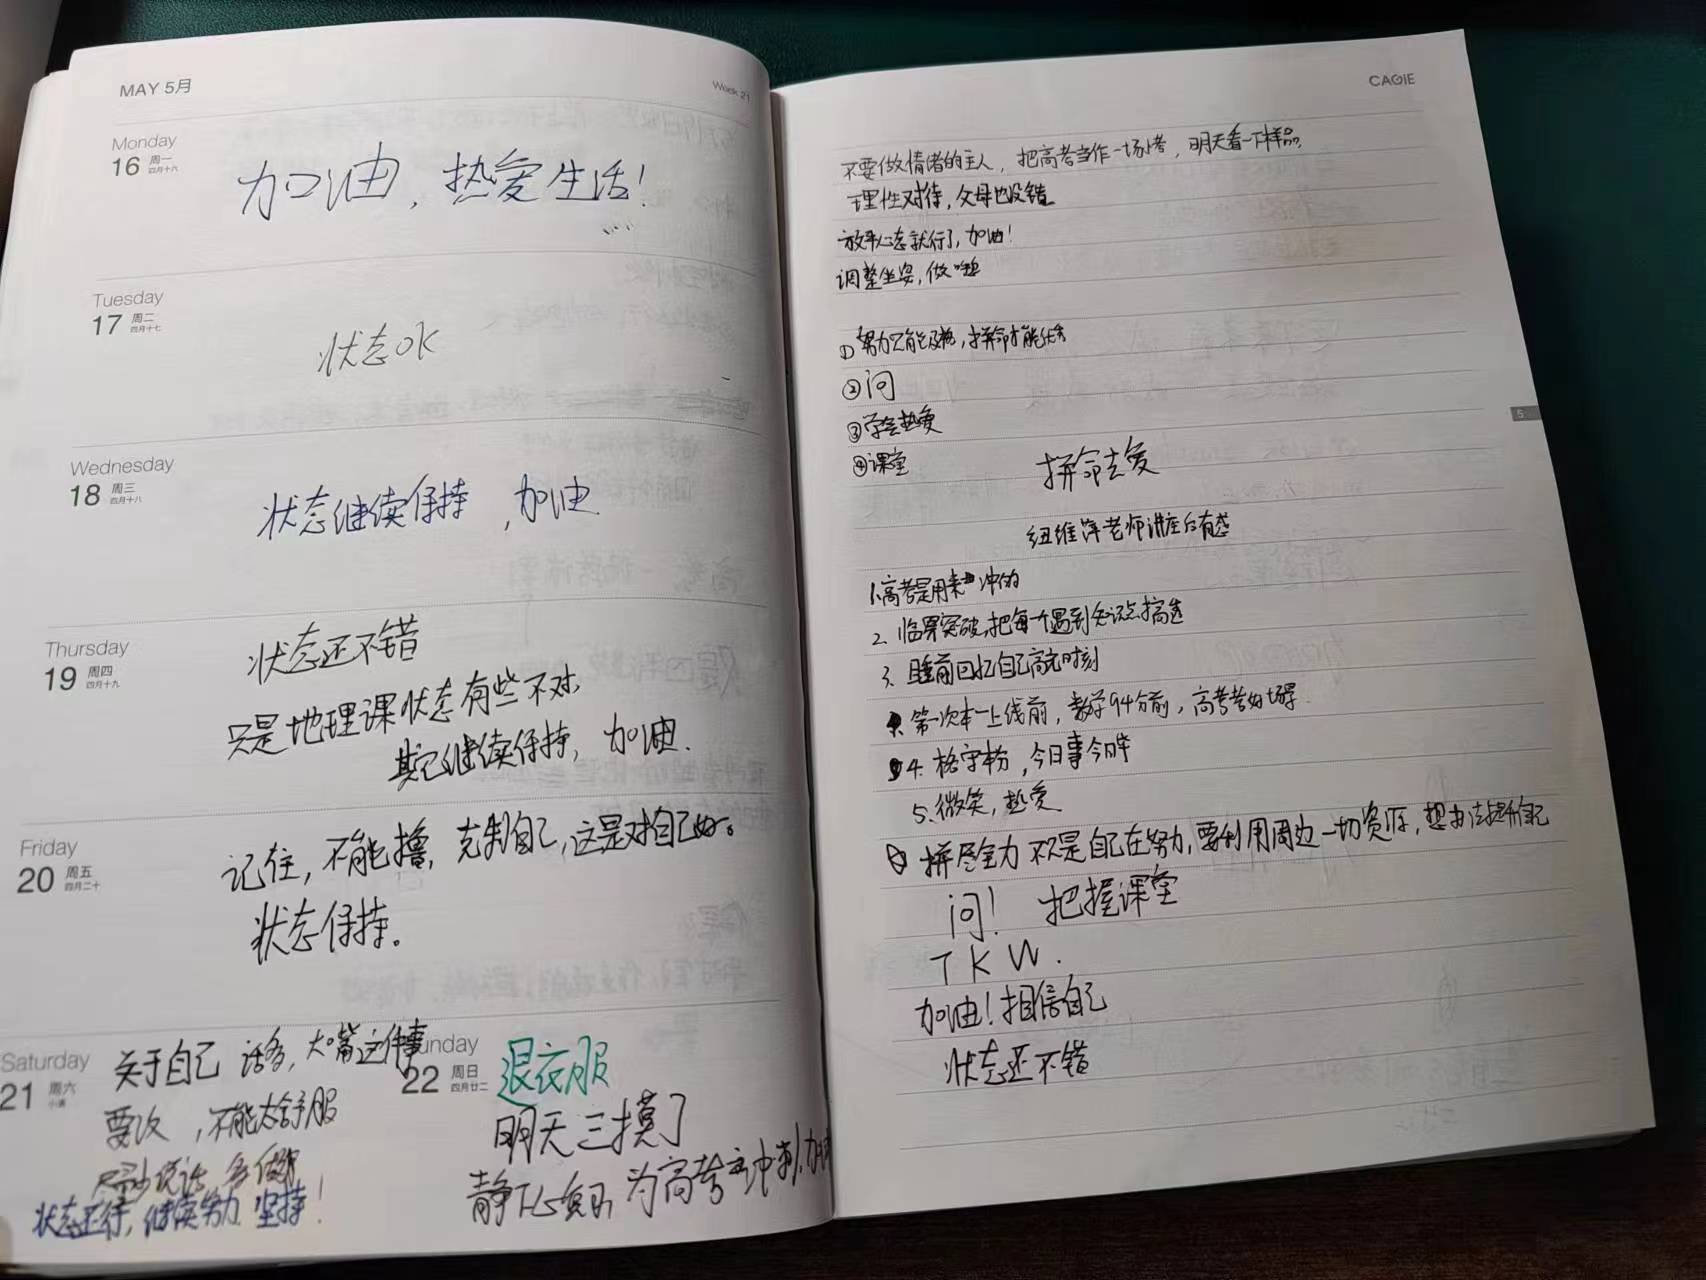 MAY 5月
Week 21
Monday
16 周一
四月十六
加油，热爱生活！
Tuesday
17 周二
四月十七
状态OK
Wednesday
18 周三
四月十八
状态继续保持，加油
Thursday
19 周四
四月十九
状态还不错
只是地理课状态有些不对，
其它继续保持，加油.
Friday
20 周五
四月二十
记住，不能撸，克制自己，这是对自己好。
状态保持。
Saturday
21 周六
小满
关于自己 话多，大嘴这件事
要改，不能太舒服
尽少说话，多做
状态还行，继续努力 坚持！
22 周日
四月廿二
退衣服
明天三摸了
静下心复习，为高考去冲刺，加油
CAGIE
不要做情绪的主人，把高考当作一场考，明天看一下样品，
理性对待，父母也没错
放平心态就行了，加油！
调整坐姿，做
① 努力只能及格，拼命才能优秀
②问
③学会热爱
④课堂
拼命去爱
纽维萍老师讲座后有感
1.高考是用来冲的
2.临界突破，把每个遇到知识点搞透
3.睡前回忆自己高光时刻
第一次本一上线前，数学94分前，高考考好场景.
4.格守粉，今日事今日毕
5.微笑，热爱
拼尽全力 不只是自己在努力，要利用周边一切资源，想办法提升自己
问！ 把握课堂
T K W.
加油！相信自己
状态还不错
5